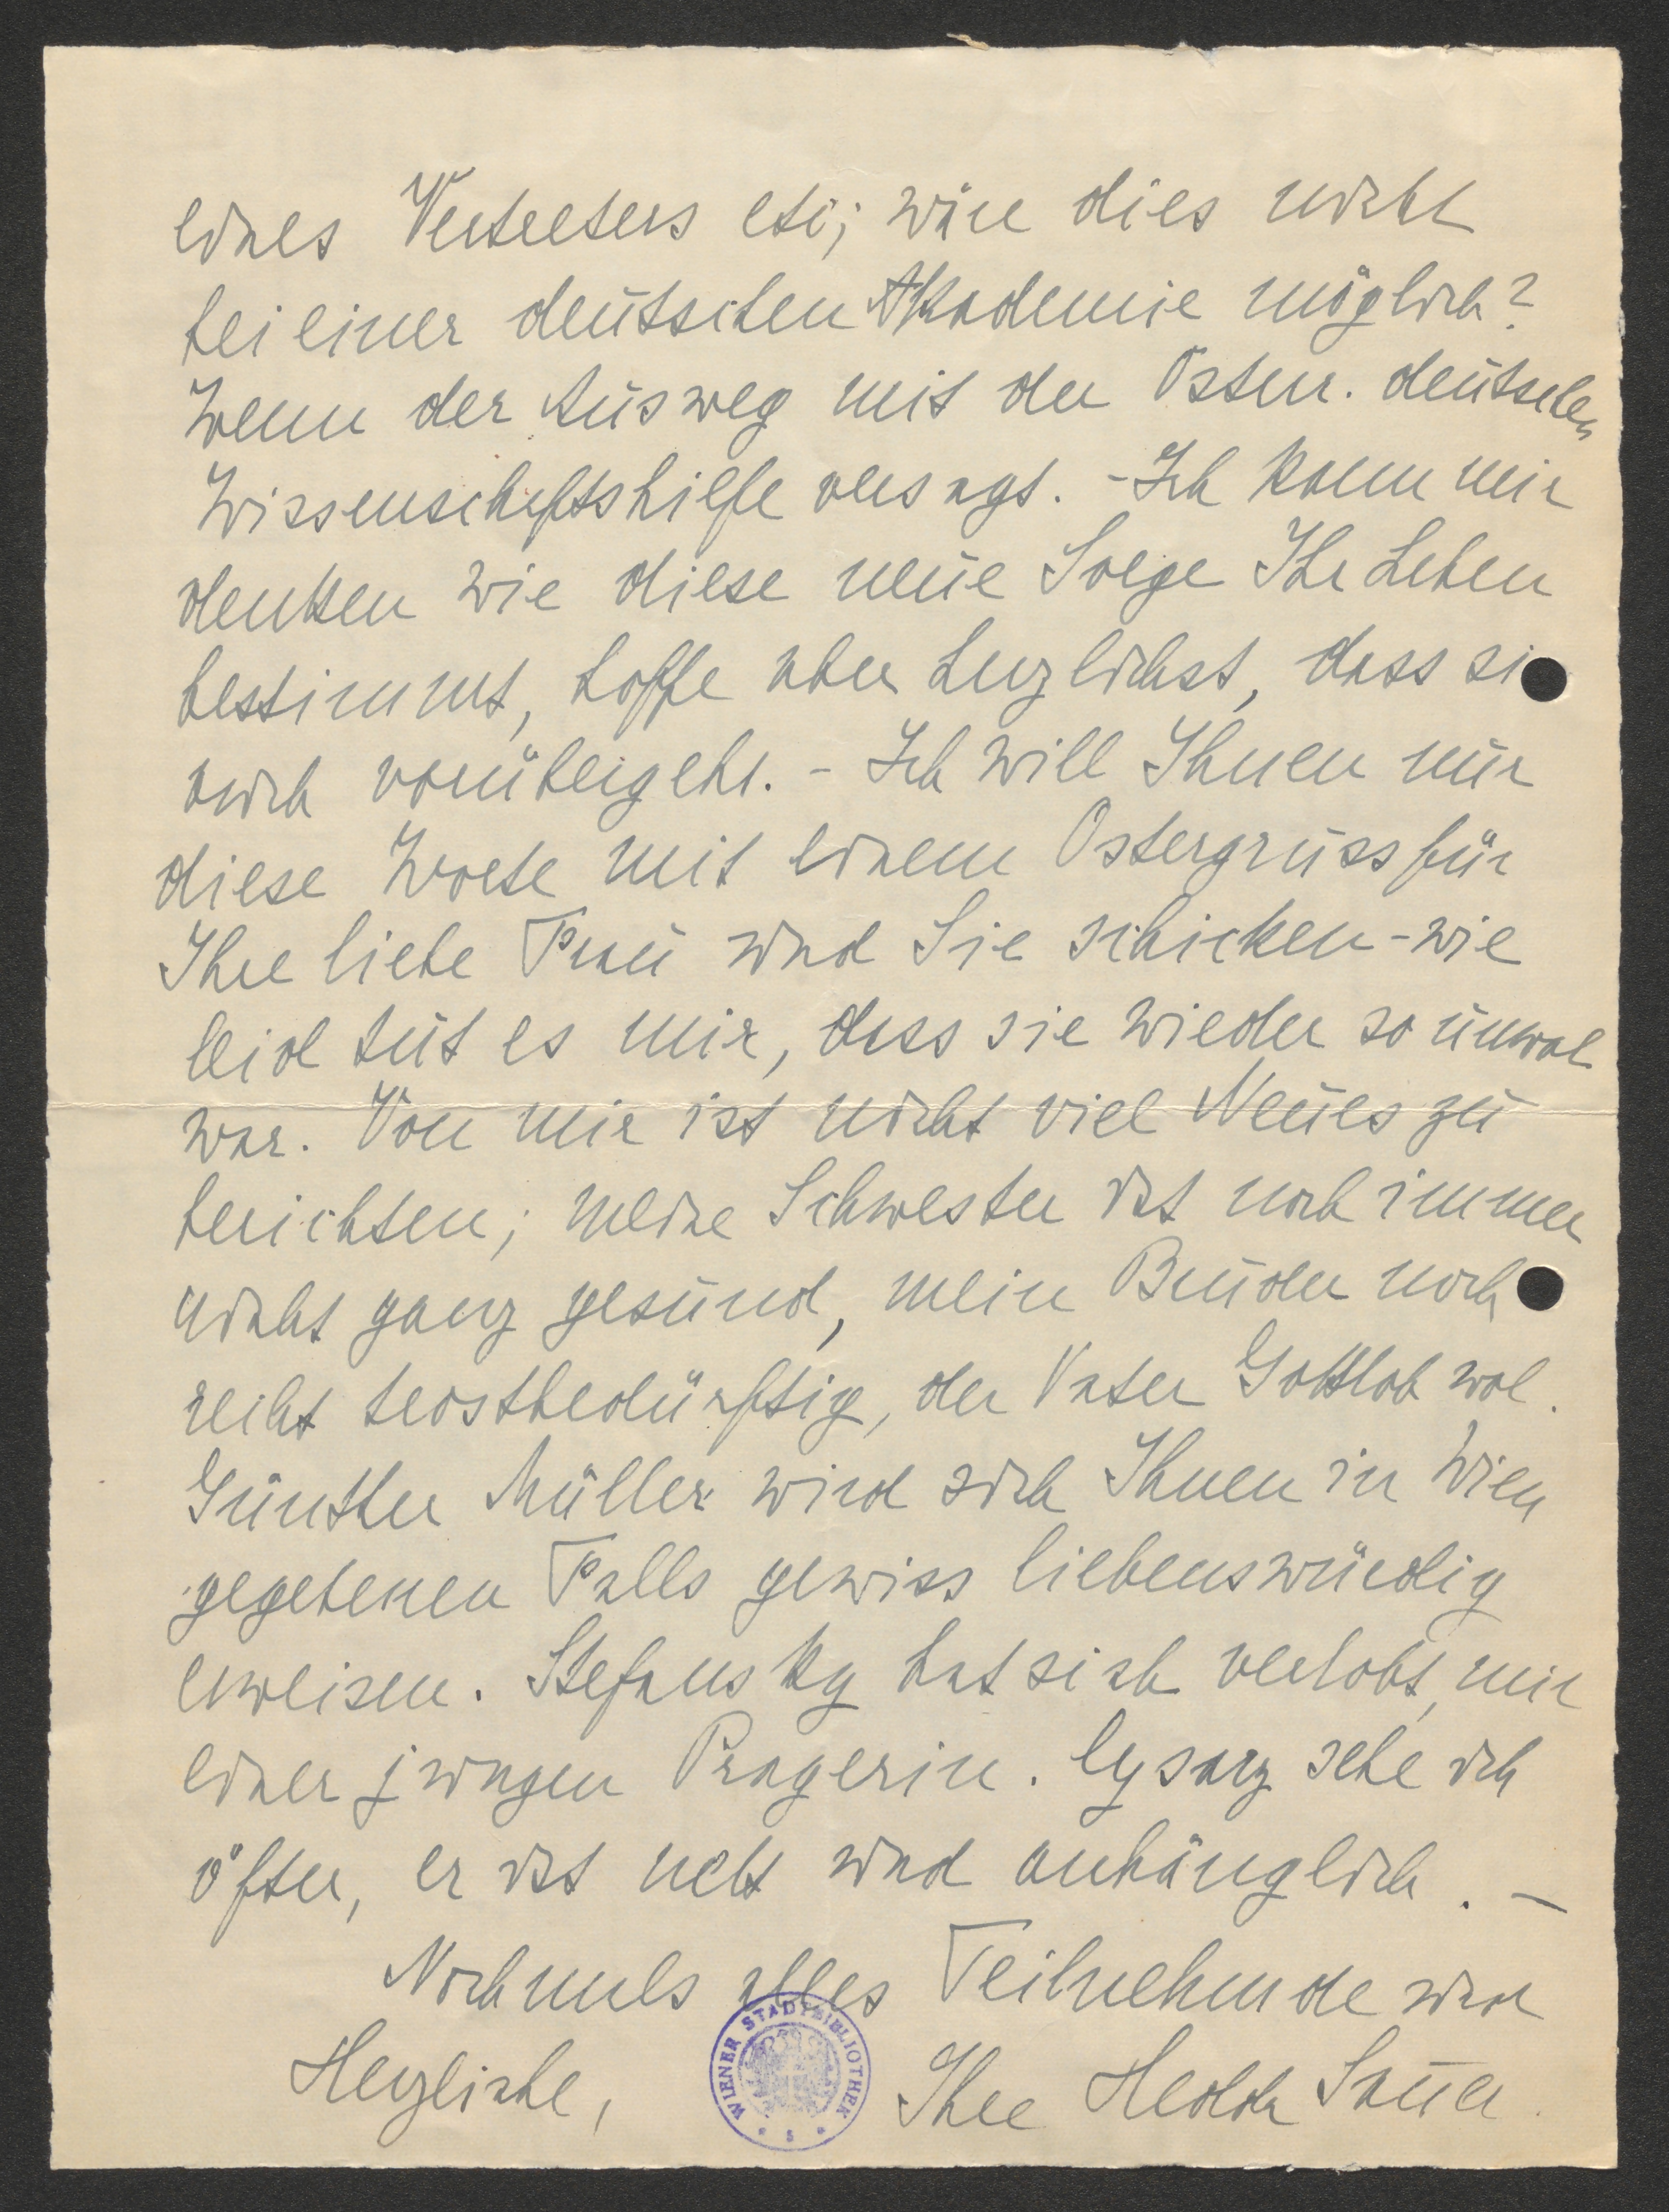 eines Vertreters etc; wäre dies nicht
bei einer deutschen Akademie möglich?
Wenn der Ausweg mit der Österr. deutschen
Wissenschaftshilfe versagt. - Ich kann mir
denken wie diese neue Sorge Ihr Leben
bestimmt, hoffe aber herzlichst, dass sie
auch vorübergeht. - Ich will Ihnen nur
diese Worte mit einem Ostergruss für
Ihre liebe Frau und Sie schicken - wie
leid tut es mir, dass sie wieder so unwol
war. Von mir ist nicht viel Neues zu
berichten; meine Schwester ist noch immer
nicht ganz gesund, mein Bruder noch
recht trostbedürftig, der Vater Gottlob wol.
Günther Müller wird sich Ihnen in Wien
gegebenen Falls gewiss liebenswürdig
erweisen. Stefansky hat sich verlobt, mit
einer jungen Pragerin. Cysarz sehe ich
öfter, er ist nett und anhänglich. -
Nochmals alles Teilnehmende und
Herzliche, Ihre Hedda Sauer.
WIENER STADTBIBLIOTHEK